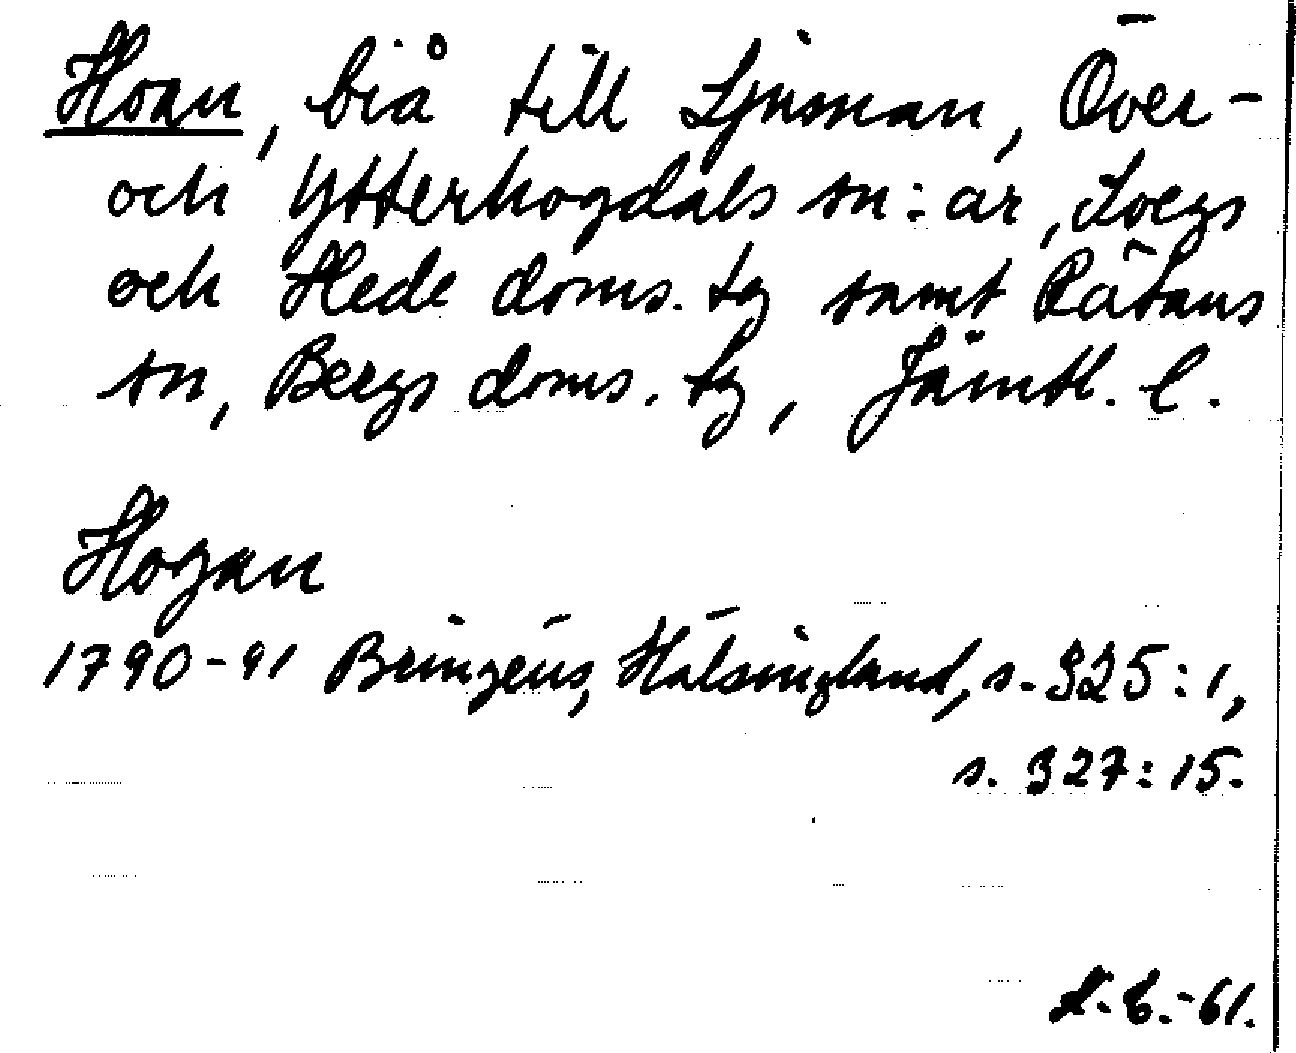 Hoan, biå till Ljusnan, Över-
och Ytterhogdals sn:ar, Svegs
och Hede doms. tg samt Rätans
sn, Bergs doms. tg, Jämtl. l.
Hogan
1790-91 Bringéus, Hälsingland, s. 325:1,
s. 327:15.
-61.